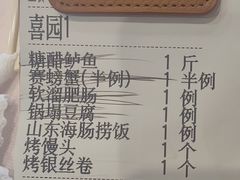 喜园1
糖醋鲈鱼 1 斤
赛螃蟹(半例) 1 半例
软溜肥肠 1 例
锅塌豆腐 1 例
山东海肠捞饭 1 例
烤馒头 1 个
烤银丝卷 1 个